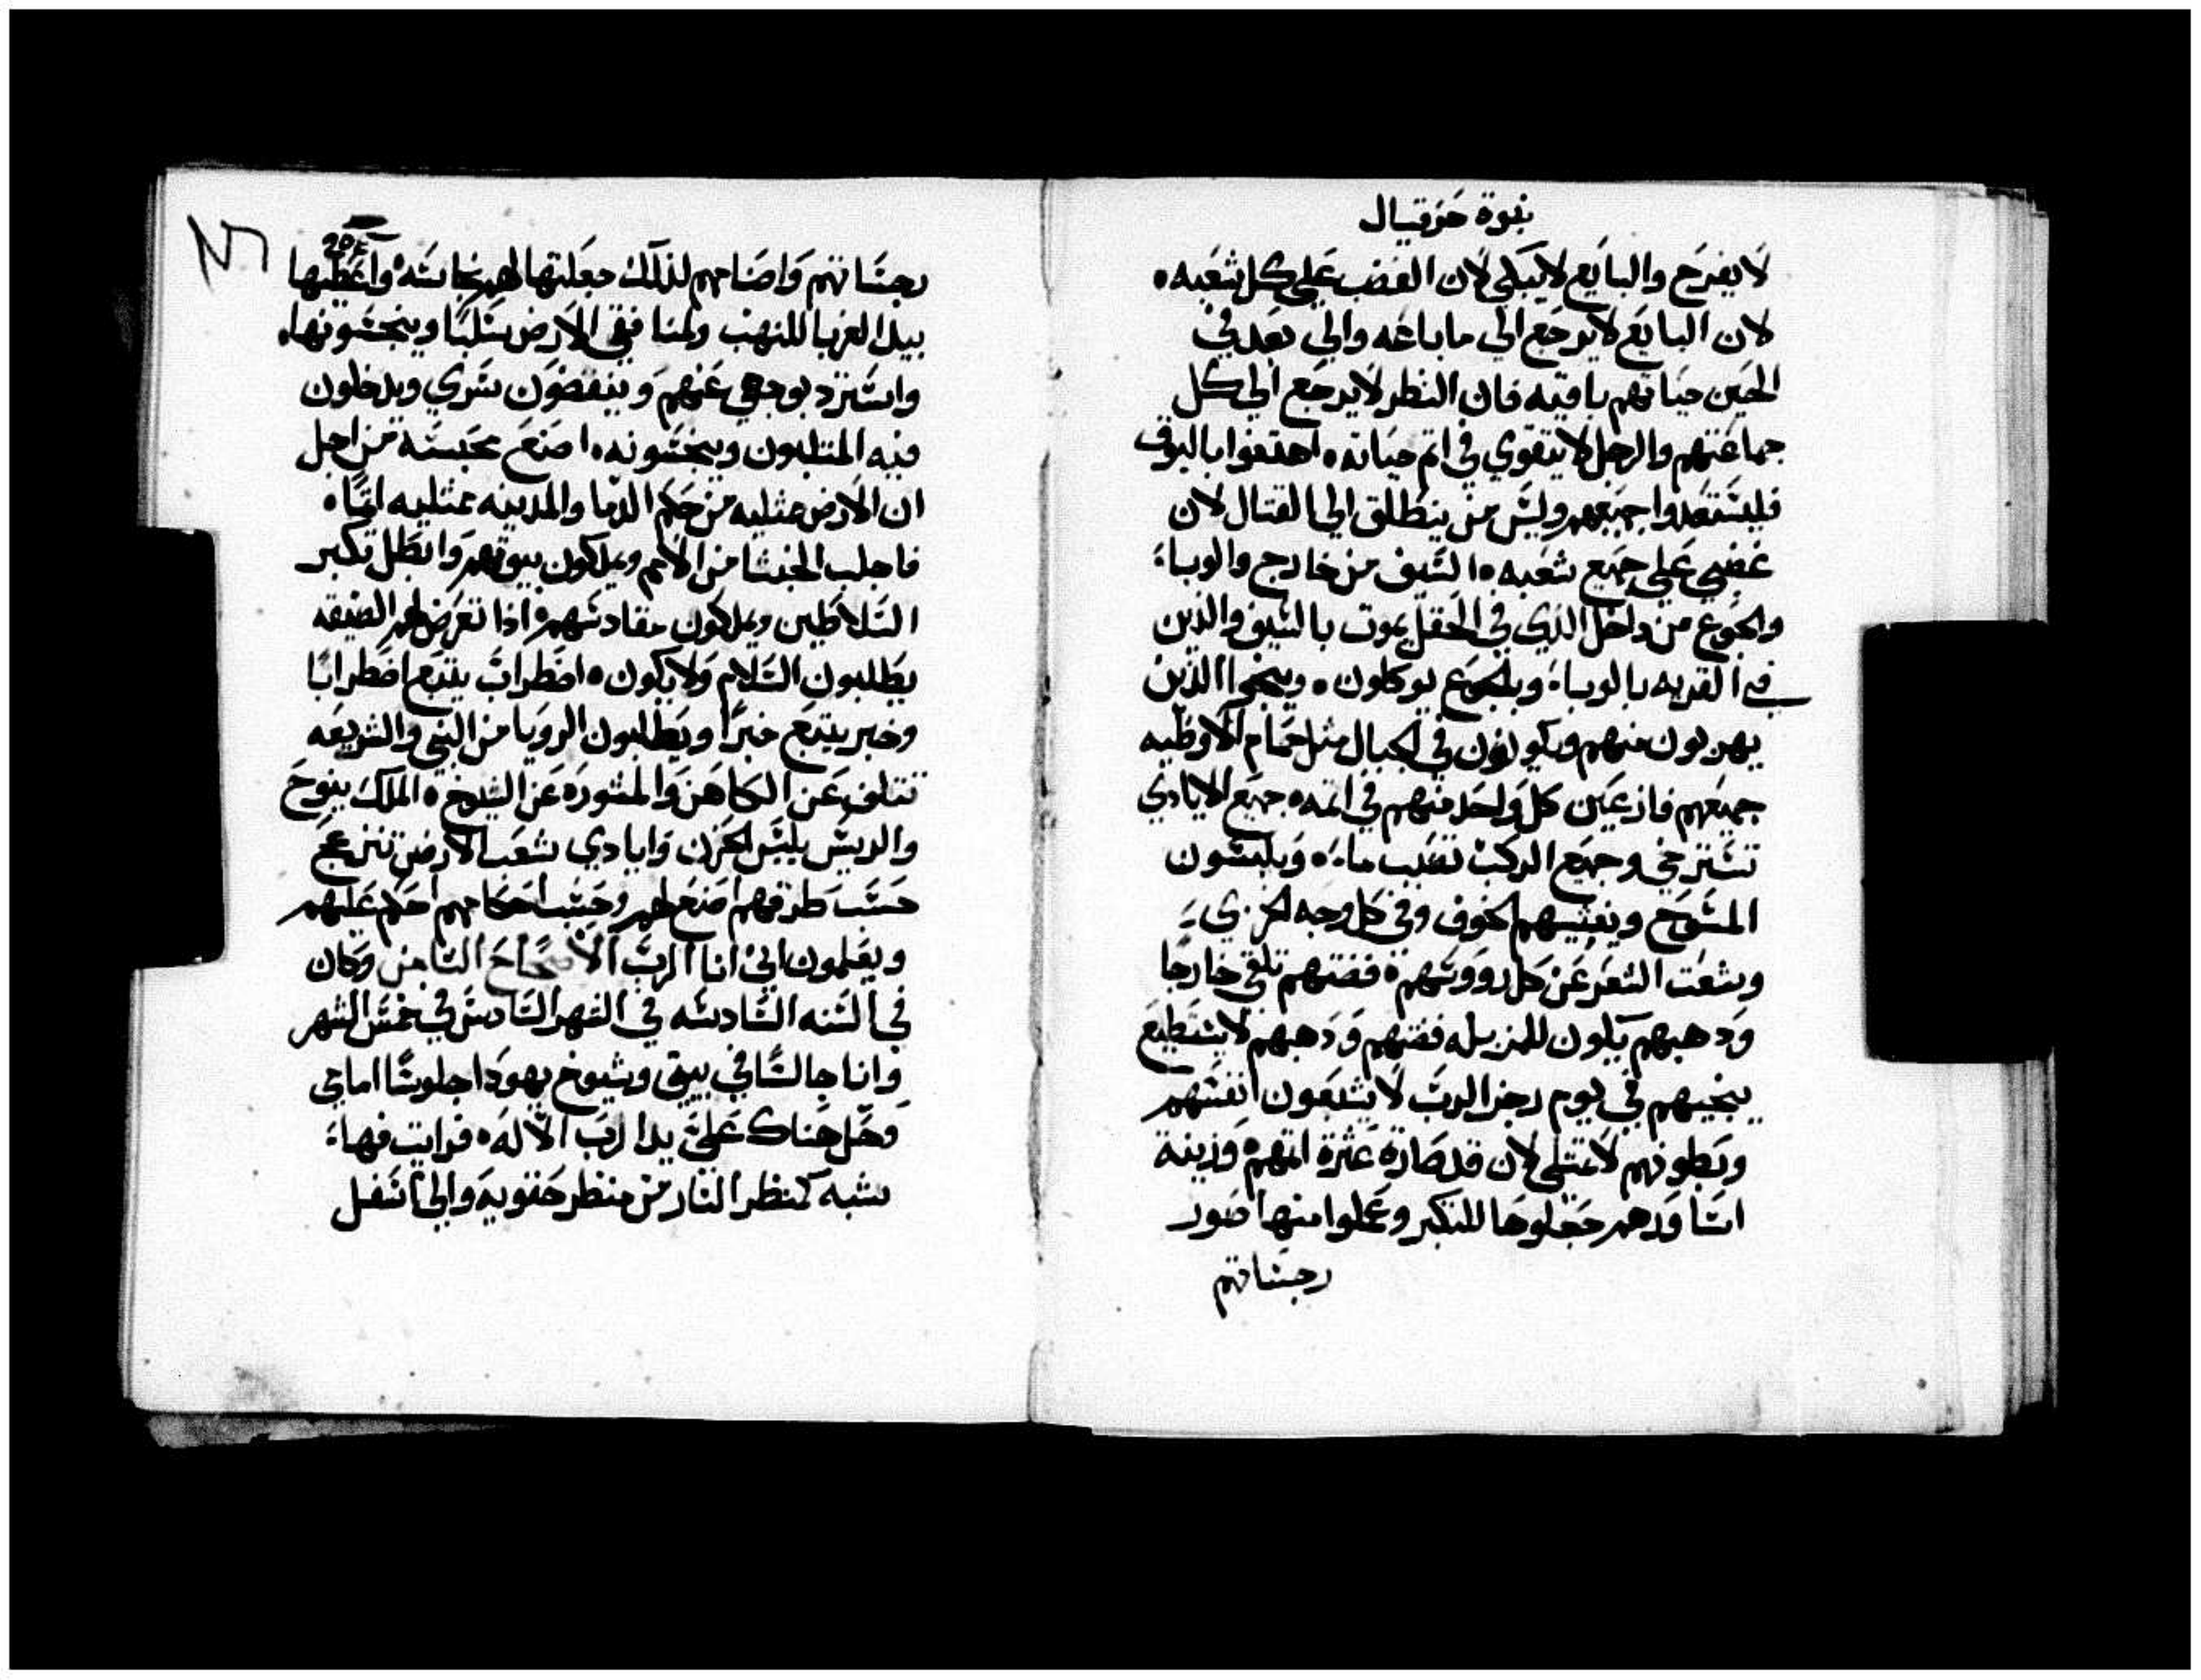 نبوة حزقيال
لا يفرح والبايع لا يبكي لان الغضب علي كل شعبه
لان البايع لا يرجع الي ما باعه والي بعد في
الحين حياتهم باقيه فان النظر لا يرجع الي كل
جماعتهم والرجل لا يتقوي في اثم حياته اهتفوا بالبوق
فليستعدوا جميعهم وليس من ينطلق الي القتال لان
غضبي علي جميع شعبه السيف من خارج والوباء
والجوع من داخل الذي في الحقل يموت بالسيف والذين
في القريه بالوباء وبالجوع يوكلون وينجوا الذين
يهربون منهم ويكونون في الجبال مثل حمام الاوطيه
جميعهم فازعين كل واحد منهم في اثمه جميع الايادي
تسترخي وجميع الركب تقلب ماء ويلبسون
المسوح ويغشيهم الخوف وفي كل وجه الخزي
وشعث الشعر عن كل رووسهم فضتهم تلقي خارجا
ودهبهم يكون للمزبله فضتهم ودهبهم لا يستطيع
ينجيهم في يوم رجز الرب لا يشبعون انفسهم
وبطونهم لا تمتلي لان قد صارة عثرة اثمهم وزينة
اساورهم جعلوها للتكبر وعملوا منها صور
رجساتهم
205
رجساتهم واصنامهم لذلك جعلتها لهم نجاسه واعطيها
بيد الغربا للنهب ولمنافقي الارض سلبا وينجسونها
واسترد بوجهي عنهم وينقضون سري ويدخلون
فيه المتلبون وينجسونه اصنع محبسه من اجل
ان الارض مثليه من حكم الدما والمدينه ممتليه اثما
فاجلب الخبثا من الامم ويملكون بيوتهم وابطل تكبر
السلاطين ويملكون مقادسهم اذا تعرض لهم الضيقه
يطلبون السلام ولا يكون اضطراب يتبع اضطرابا
وخبر يتبع خبرا ويطلبون الرويا من النبي والشريعه
تتلف عن الكاهن والمشوره عن الشيوخ الملك ينوح
والريس يلبس الحزن وايادي شعب الارض تنزعج
حسب طرقهم اصنع لهم وحسب احكامهم احكم عليهم
ويعلمون اني انا الرب الاصحاح الثامن وكان
في السنه السادسه في الشهر السادس في خمس الشهر
وانا جالسا في بيتي وشيوخ يهودا جلوسا امامي
وحل هناك علي يدا الرب الاله فرايت فها
شبه كمنظر النار من منظر حقويه والي اسفل